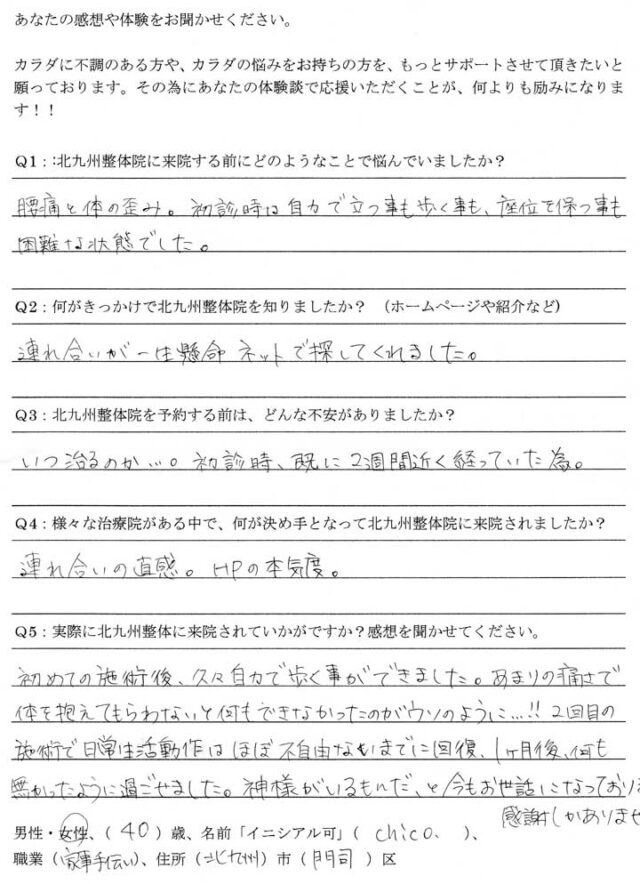 あなたの感想や体験をお聞かせください。
カラダに不調のある方や、カラダの悩みをお持ちの方を、もっとサポートさせて頂きたいと
願っております。その為にあなたの体験談で応援いただくことが、何よりも励みになりま
す！！
Q1：:北九州整体院に来院する前にどのようなことで悩んでいましたか？
腰痛と体の歪み。初診時は自力で立つ事も歩く事も、座位を保つ事も
困難な状態でした。
Q2：何がきっかけで北九州整体院を知りましたか？（ホームページや紹介など）
連れ合いが一生懸命ネットで探してくれました。
Q3：北九州整体院を予約する前は、どんな不安がありましたか？
いつ治るのか…。初診時、既に2週間近く経っていた為。
Q4：様々な治療院がある中で、何が決め手となって北九州整体院に来院されましたか？
連れ合いの直感。HPの本気度。
Q5：実際に北九州整体に来院されていかがですか？感想を聞かせてください。
初めての施術後、久々自力で歩く事ができました。あまりの痛さで
体を抱えてもらわないと何もできなかったのがウソのように…!!2回目の
施術で日常生活動作はほぼ不自由ないまでに回復、1ヶ月後、何も
無かったように過ごせました。神様がいるもんだ、と今もお世話になっており
感謝しかありませ
男性・女性、（40）歳、名前「イニシアル可」（chico.）、
職業（家事手伝い）、住所（北九州）市（門司）区